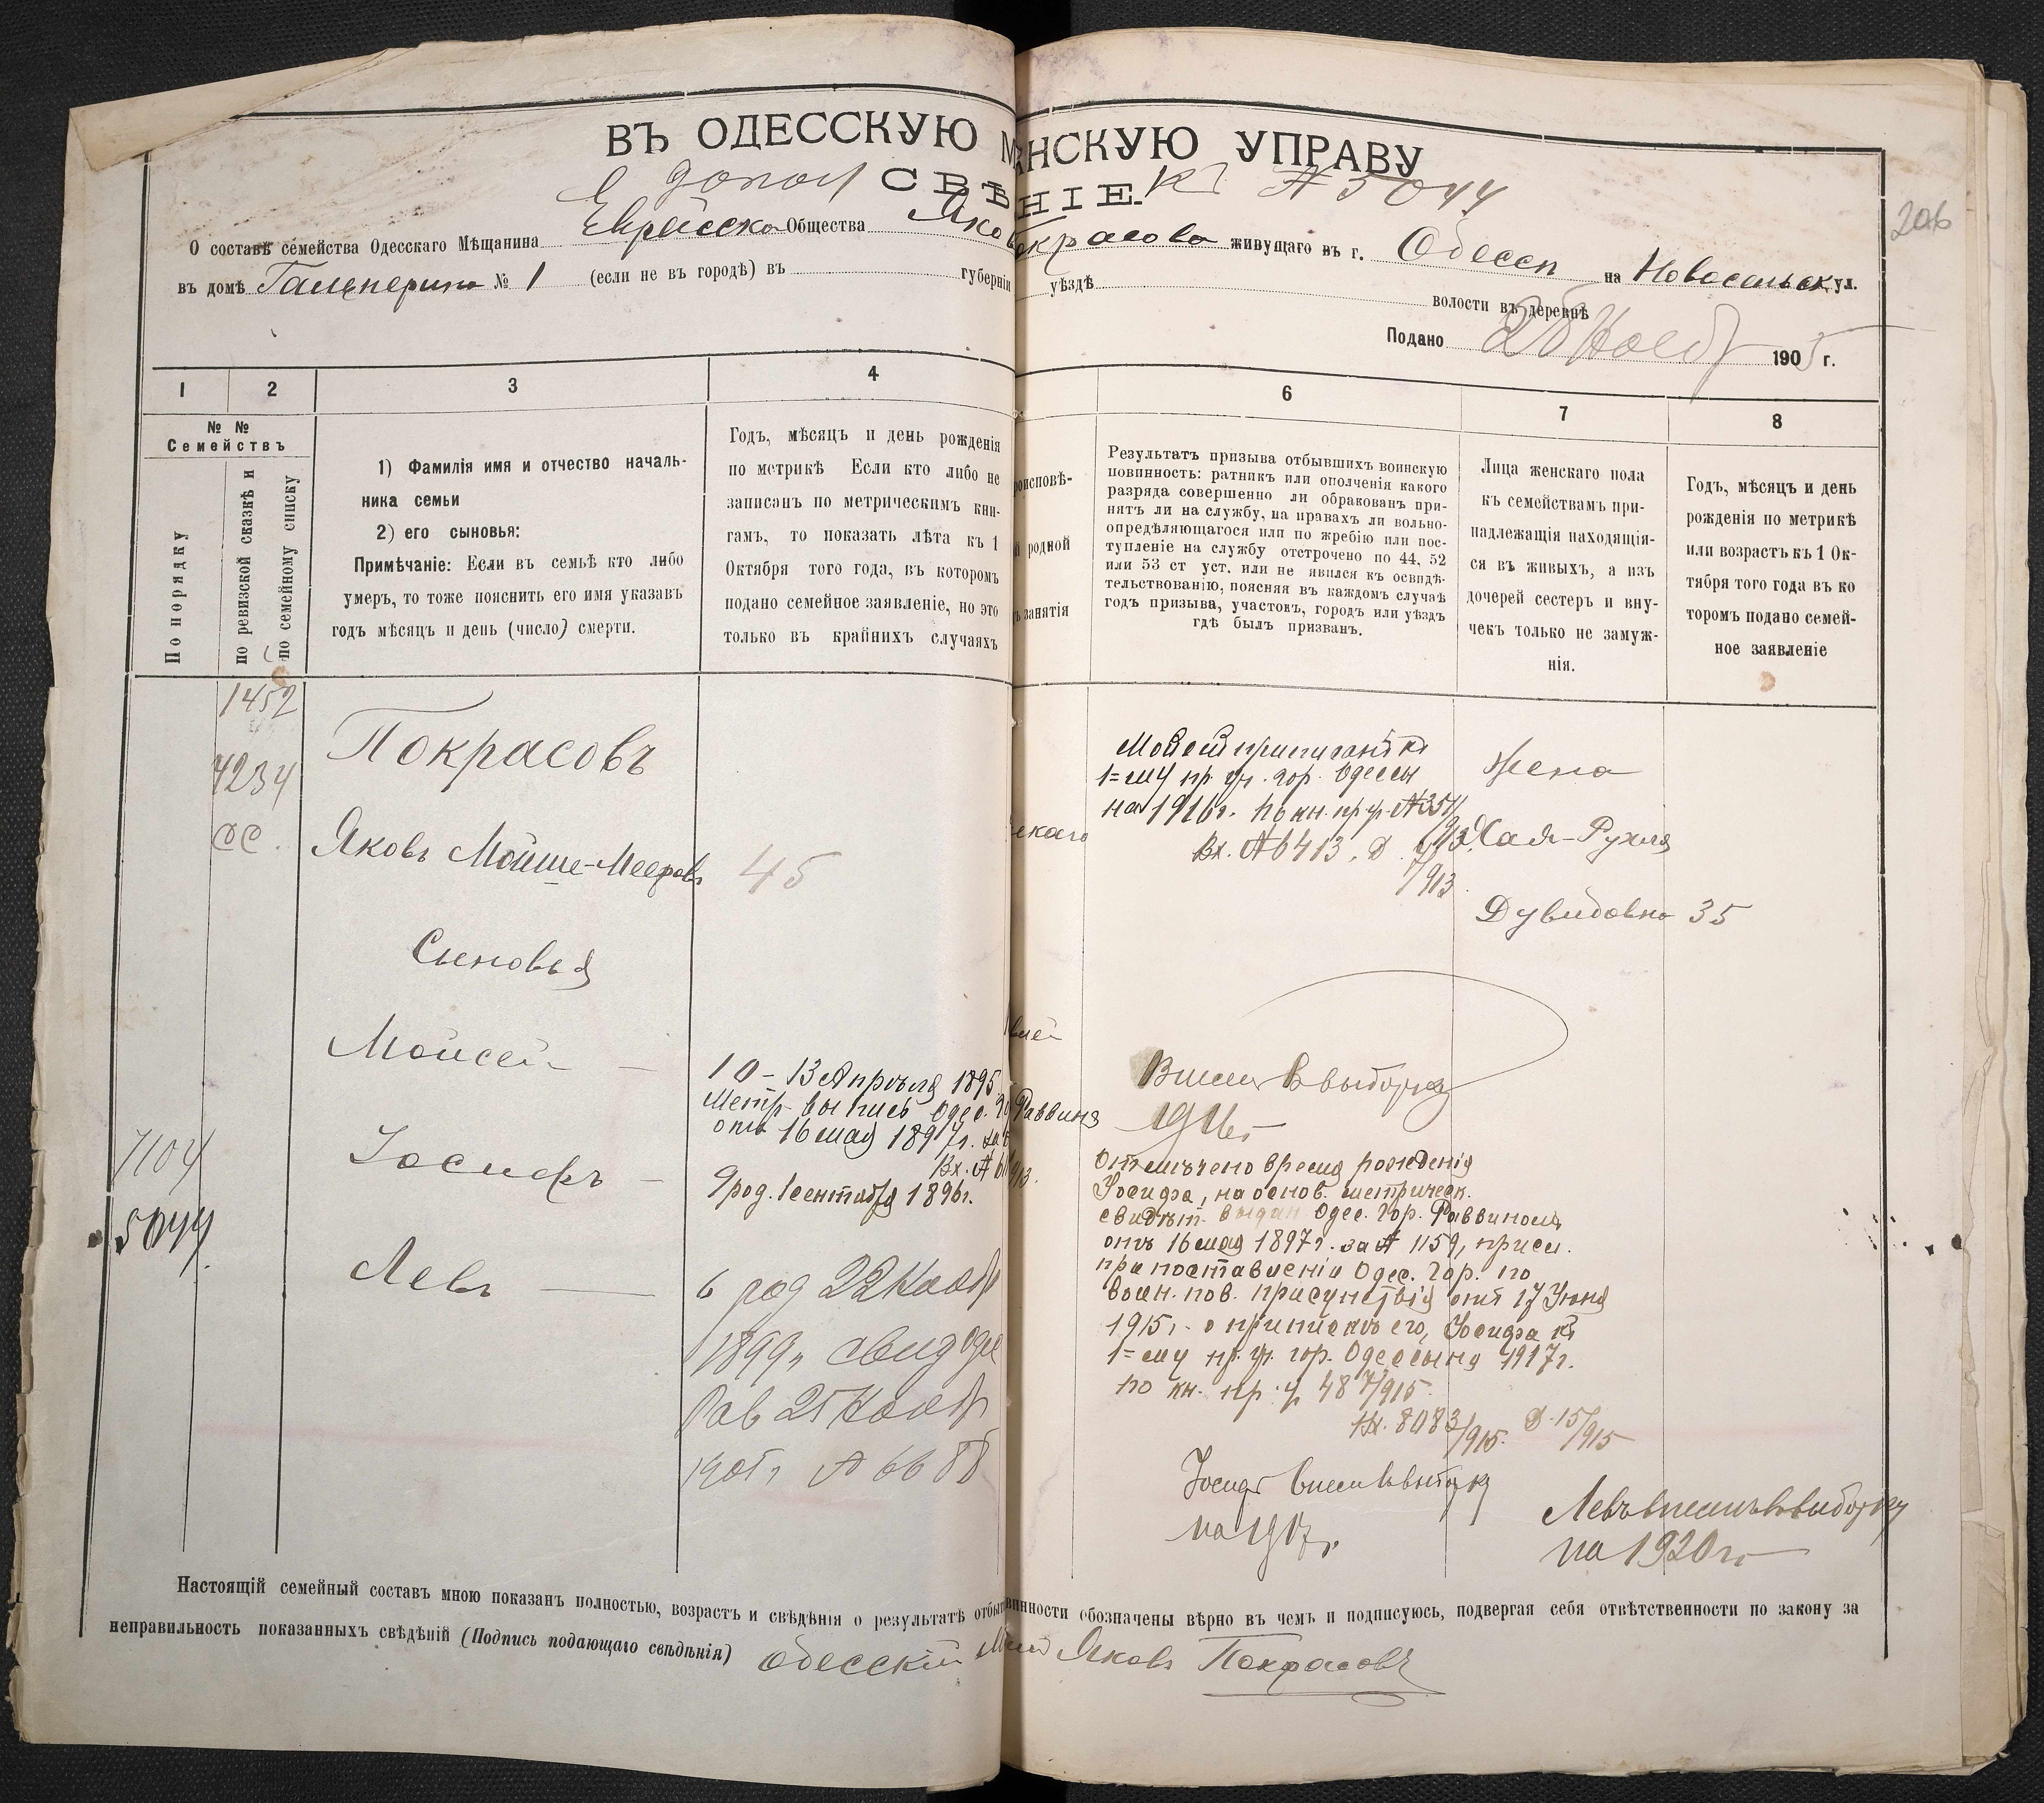 ВЪ ОДЕССКУЮ М НСКУЮ УПРАВУ
дополн СВѢ НІЕ. къ № 5044
206
О составѣ семейства Одесскаго Мѣщанина Еврейска Общества Яков окрасова живущаго въ г. Одессѣ на Новосельск ул.
въ домѣ Гальперина № 1 (если не въ городѣ) въ губерніи уѣздѣ волости въ деревнѣ
Подано 28 Нояб 1905 г.
1 2 3 4 6 7 8
№ №
Семействъ
По порядку
по ревизской сказкѣ и
по семейному списку
1) Фамилія имя и отчество началь-
ника семьи
2) его сыновья:
Примѣчаніе: Если въ семьѣ кто либо
умеръ, то тоже пояснить его имя указавъ
годъ мѣсяцъ и день (число) смерти.
Годъ, мѣсяцъ и день рожденія
по метрикѣ Если кто либо не
записанъ по метрическимъ кни-
гамъ, то показать лѣта къ 1
Октября того года, въ которомъ
подано семейное заявленіе, но это
только въ крайнихъ случаяхъ
роисповѣ-
й родной
ъ занятія
Результатъ призыва отбывшихъ воинскую
повинность: ратникъ или ополченія какого
разряда совершенно ли обракованъ при-
нятъ ли на службу, на правахъ ли вольно-
опредѣляющагося или по жребію или пос-
тупленіе на службу отстрочено по 44, 52
или 53 ст уст. или не явился къ освидѣ-
тельствованію, поясняя въ каждомъ случаѣ
годъ призыва, участокъ, городъ или уѣздъ
гдѣ былъ призванъ.
Лица женскаго пола
къ семействамъ при-
надлежащія находящія-
ся въ живыхъ, а изъ
дочерей сестеръ и вну-
чекъ только не замуж-
нія.
Годъ, мѣсяцъ и день
рожденія по метрикѣ
или возрастъ къ 1 Ок-
тября того года въ ко
торомъ подано семей-
ное заявленіе
1452
4234
Покрасовъ
Яковъ Мойше-Мееровъ 45
Сыновья
Моисей —
10 – 13 Апрѣля 1895
Метр. выпись Одес. Раввина
отъ 16 мая 1897г.
Вх. №
7104
Іосифъ —
9 род. 1 сентября 1896г.
5044
Левъ —
6 род 22 Нояб
1899г свид Одес
Рав 25 Нояб
1905г № 6688
скаго
Мойсей приписанъ къ
1=му пр. уч. гор. Одессы
на 1916г. по кн. пр. уч. № 351/913
Вх. № 6413. Д.
/913
Жена
Хая-Рухля
Дувидовна 35
Внесен въ выборку
1916г
Отмѣчено время рожденія
Іосифа, на основ. метрическ.
свидѣт. выдан Одес. Гор. Раввиномъ
отъ 16 мая 1897г. за № 1159, присл.
при поставленіи Одес. Гор. по
воин. пов. присутствія отъ 17 Іюня
1915г. о припискѣ его, Іосифа къ
1=му пр. уч. гор. Одессы на 1917г.
по кн. пр. уч 487/915.
Вх. 8083/915. Д. 15/915
Іосиф внесен въ выборку
на 1917г.
Левъ внесенъ въ выборку
на 1920г.
Настоящій семейный составъ мною показанъ полностью, возрастъ и свѣдѣнія о результатѣ отбыт винности обозначены вѣрно въ чемъ и подписуюсь, подвергая себя отвѣтственности по закону за
неправильность показанныхъ свѣдѣній (Подпись подающаго свѣдѣнія) Одесскій Яковъ Покрасовъ